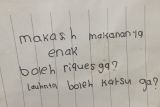 makasih makanannya
enak
boleh riques ga?
lauknya boleh katsu ga?